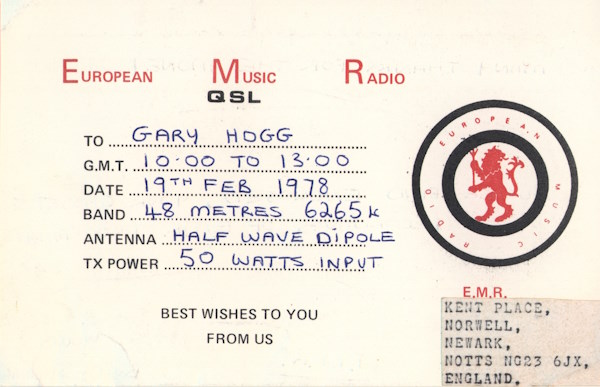 EUROPEAN MUSIC RADIO
QSL
TO GARY HOGG
G.M.T. 10·00 TO 13·00
DATE 19TH FEB 1978
BAND 48 METRES 6265K
ANTENNA HALF WAVE DIPOLE
TX POWER 50 WATTS INPUT
BEST WISHES TO YOU
FROM US
EUROPEAN MUSIC RADIO
E.M.R.
KENT PLACE,
NORWELL,
NEWARK,
NOTTS NG23 6JX,
ENGLAND.